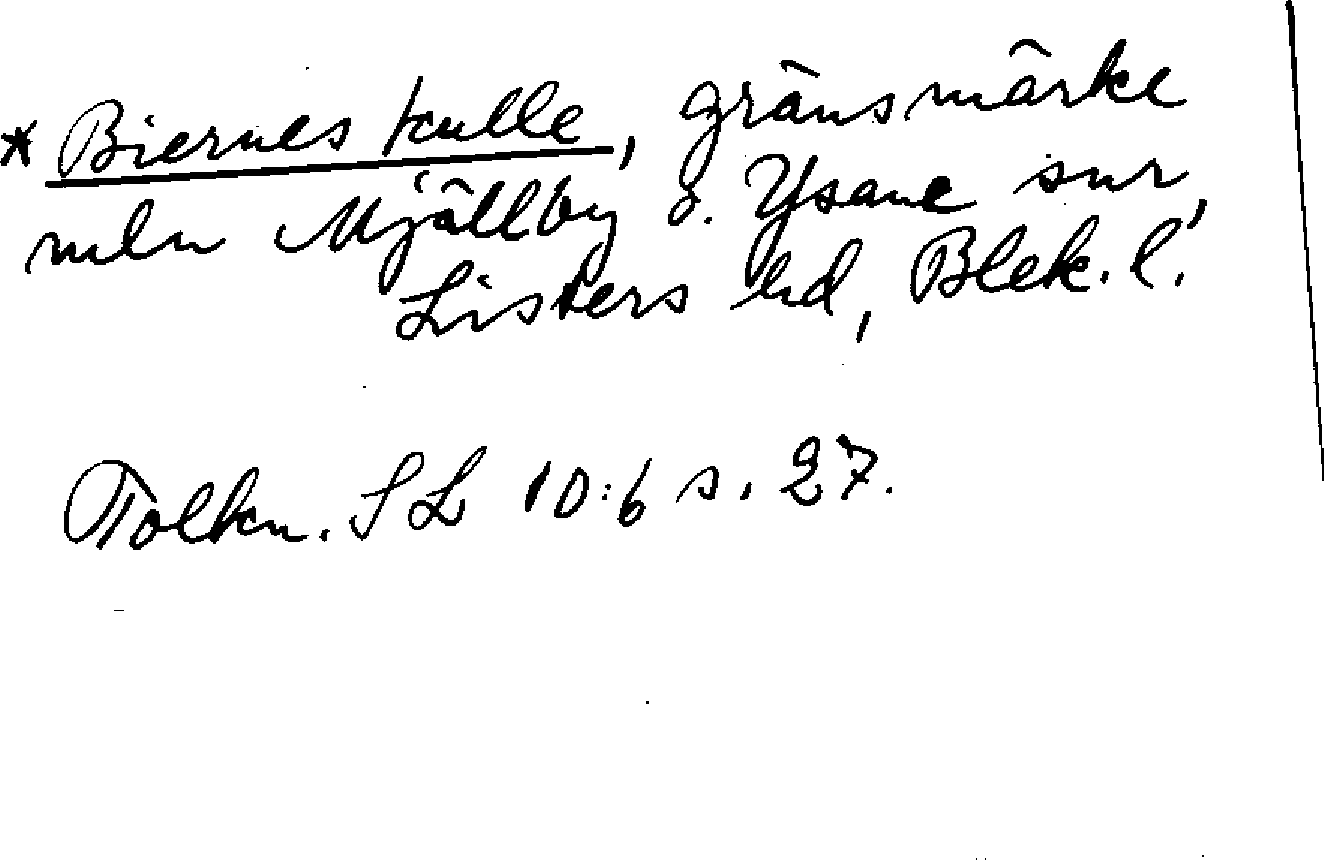 * Biernes kulle, gränsmärke
mln Mjällby o. Ysane snr,
Listers hd, Blek. l.
Tolkn. SL 10:6 s. 27.